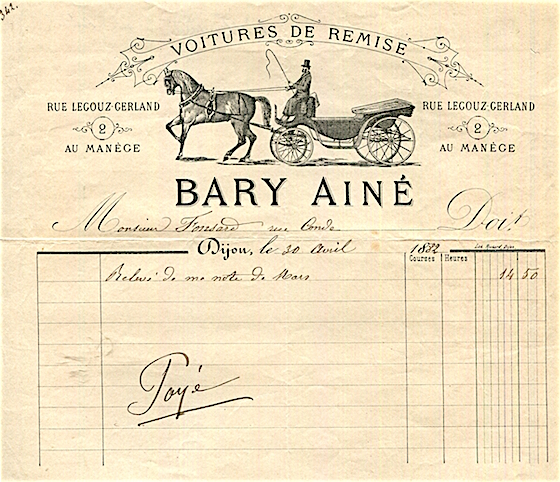 342.
VOITURES DE REMISE
RUE LEGOUZ-GERLAND
2
AU MANÈGE
RUE LEGOUZ-GERLAND
2
AU MANÈGE
BARY AINÉ
Monsieur Fonsard rue Condé Doit
Dijon, le 30 Avril 1882
Courses Heures
Relevé de ma note de Mars 14 50
Payé